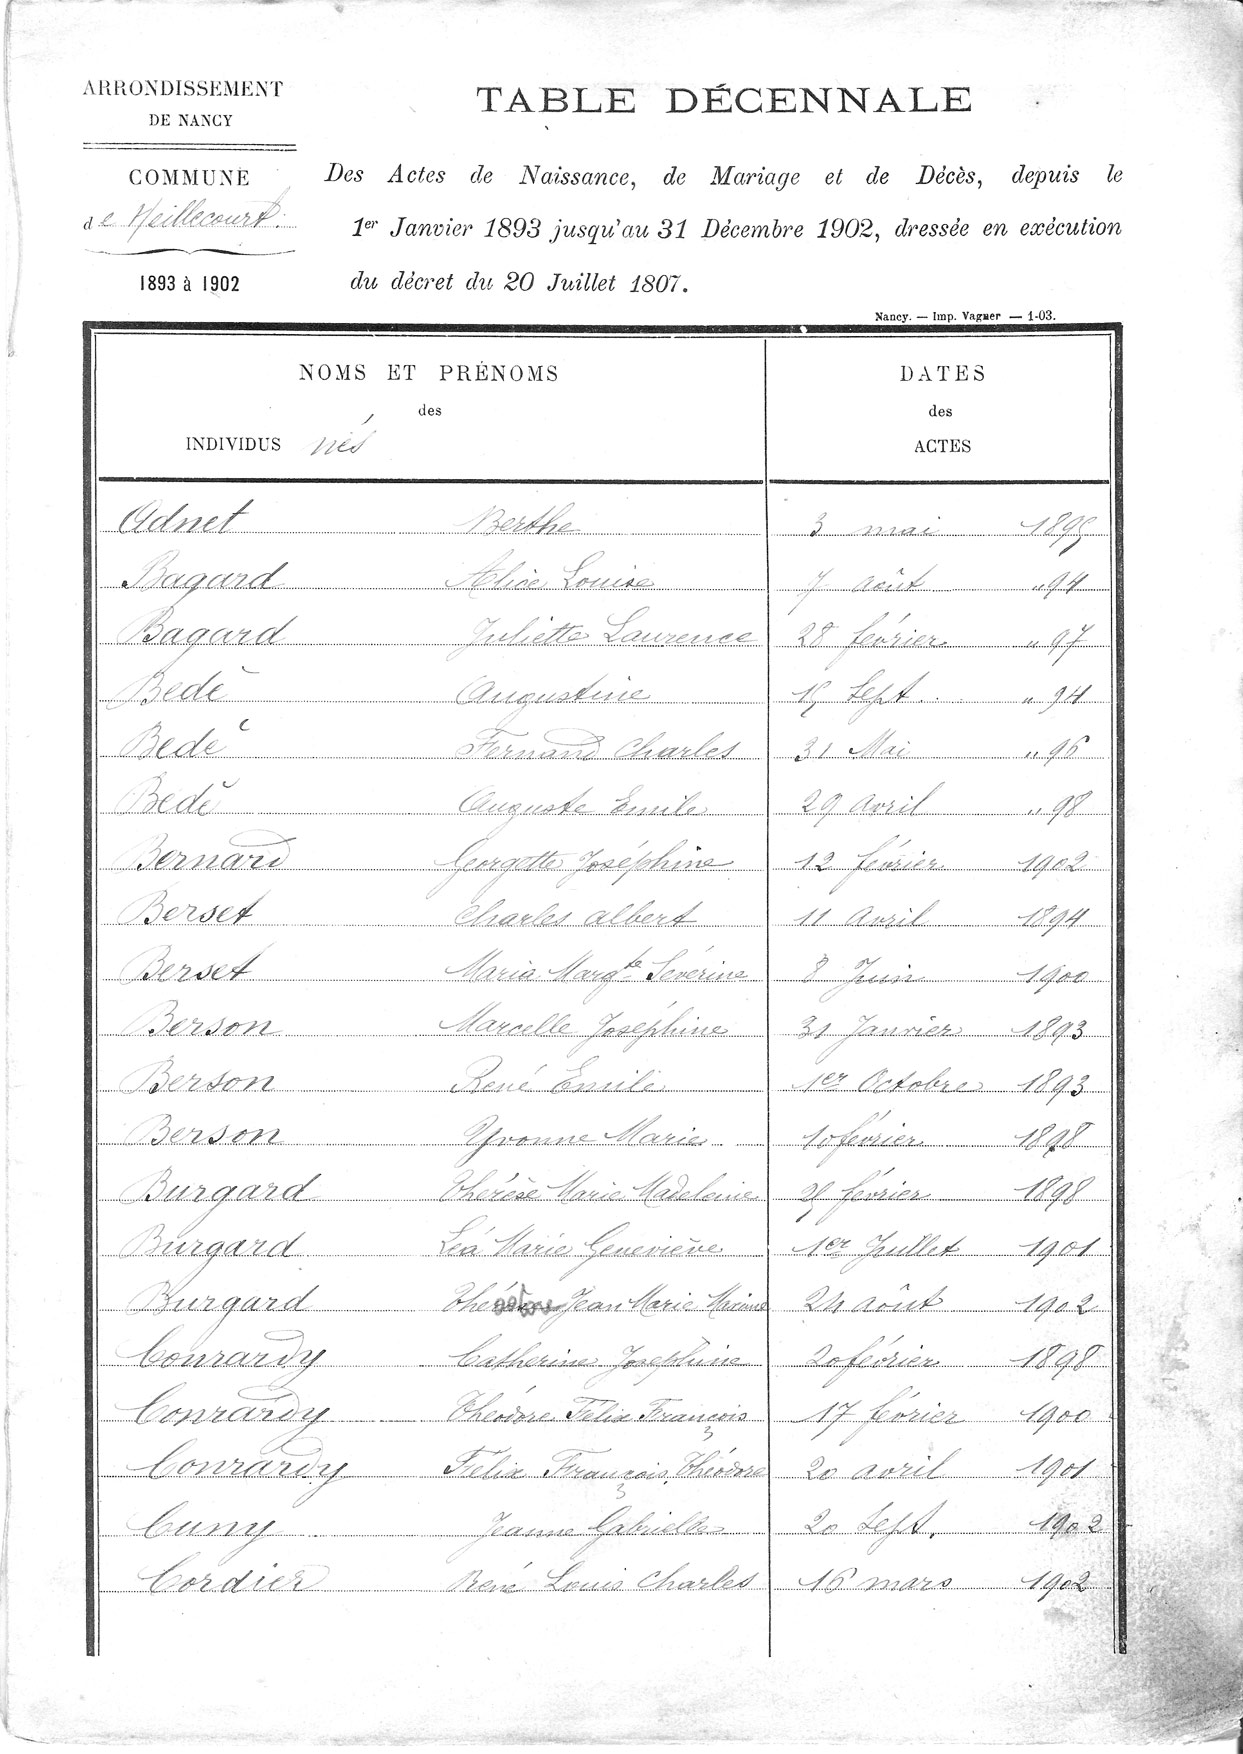 ARRONDISSEMENT
DE NANCY
COMMUNE
de Heillecourt.
1893 à 1902
TABLE DÉCENNALE
Des Actes de Naissance, de Mariage et de Décès, depuis le
1er Janvier 1893 jusqu'au 31 Décembre 1902, dressée en exécution
du décret du 20 Juillet 1807.
Nancy. — Imp. Vagner — 1-03.
NOMS ET PRÉNOMS
des
INDIVIDUS nés
DATES
des
ACTES
Adnet Berthe 3 mai 1895
Bagard Alice Louise 7 août " 94
Bagard Juliette Laurence 28 février " 97
Bedé Augustine 15 Sept. " 94
Bedé Fernand Charles 31 Mai " 96
Bedé Auguste Emile 29 avril " 98
Bernard Georgette Joséphine 12 février 1902
Berset Charles albert 11 avril 1894
Berset Maria Margte Séverine 8 Juin 1900
Berson Marcelle Joséphine 31 Janvier 1893
Berson René Emile 1er Octobre 1893
Berson Yvonne Marie 10 février 1898
Burgard Thérèse Marie Madeleine 25 février 1898
Burgard Léa Marie Geneviève 1er Juillet 1901
Burgard Jean Marie Maxime 24 août 1902
Conrardy Catherine Joséphine 20 février 1898
Conrardy Théodore Félix François 17 février 1900
Conrardy Félix François Théodore 20 avril 1901
Cuny Jeanne Gabrielle 20 Sept. 1902
Cordier René Louis Charles 16 mars 1902